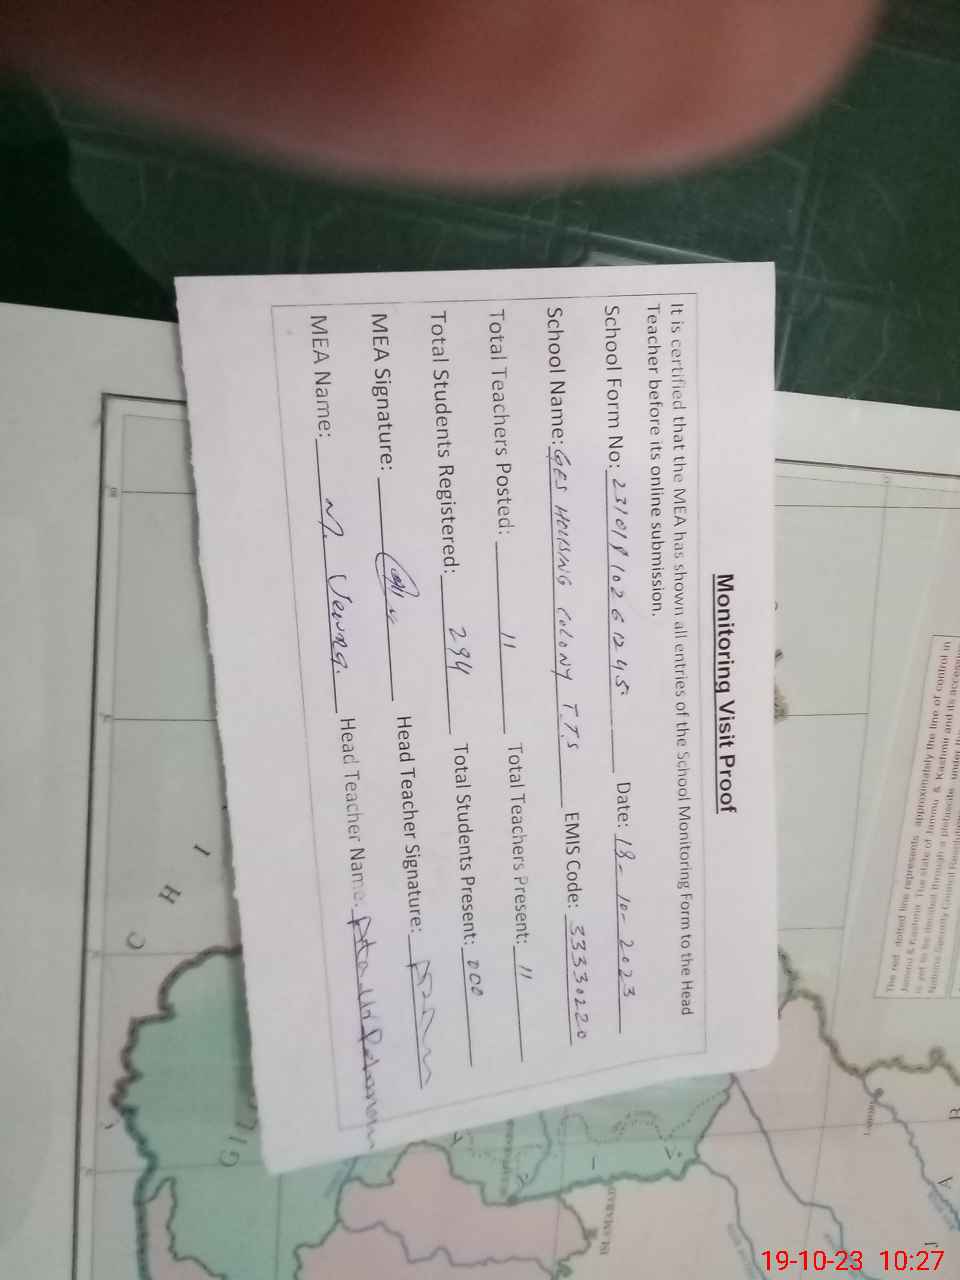 Monitoring Visit Proof
It is certified that the MEA has shown all entries of the School Monitoring Form to the Head
Teacher before its online submission.
School Form No: Date: 18-10-2023
School Name: GES HOUSING COLONY T.T.S EMIS Code: 33330220
Total Teachers Posted: 11 Total Teachers Present: 11
Total Students Registered: 294 Total Students Present: 000
MEA Signature: Head Teacher Signature:
MEA Name: M. Head Teacher Name:
The red dotted line represents approximately the line of control in
Jammu & Kashmir. The state of Jammu & Kashmir and its
is yet to be decided through a plebiscite under the
19-10-23 10:27